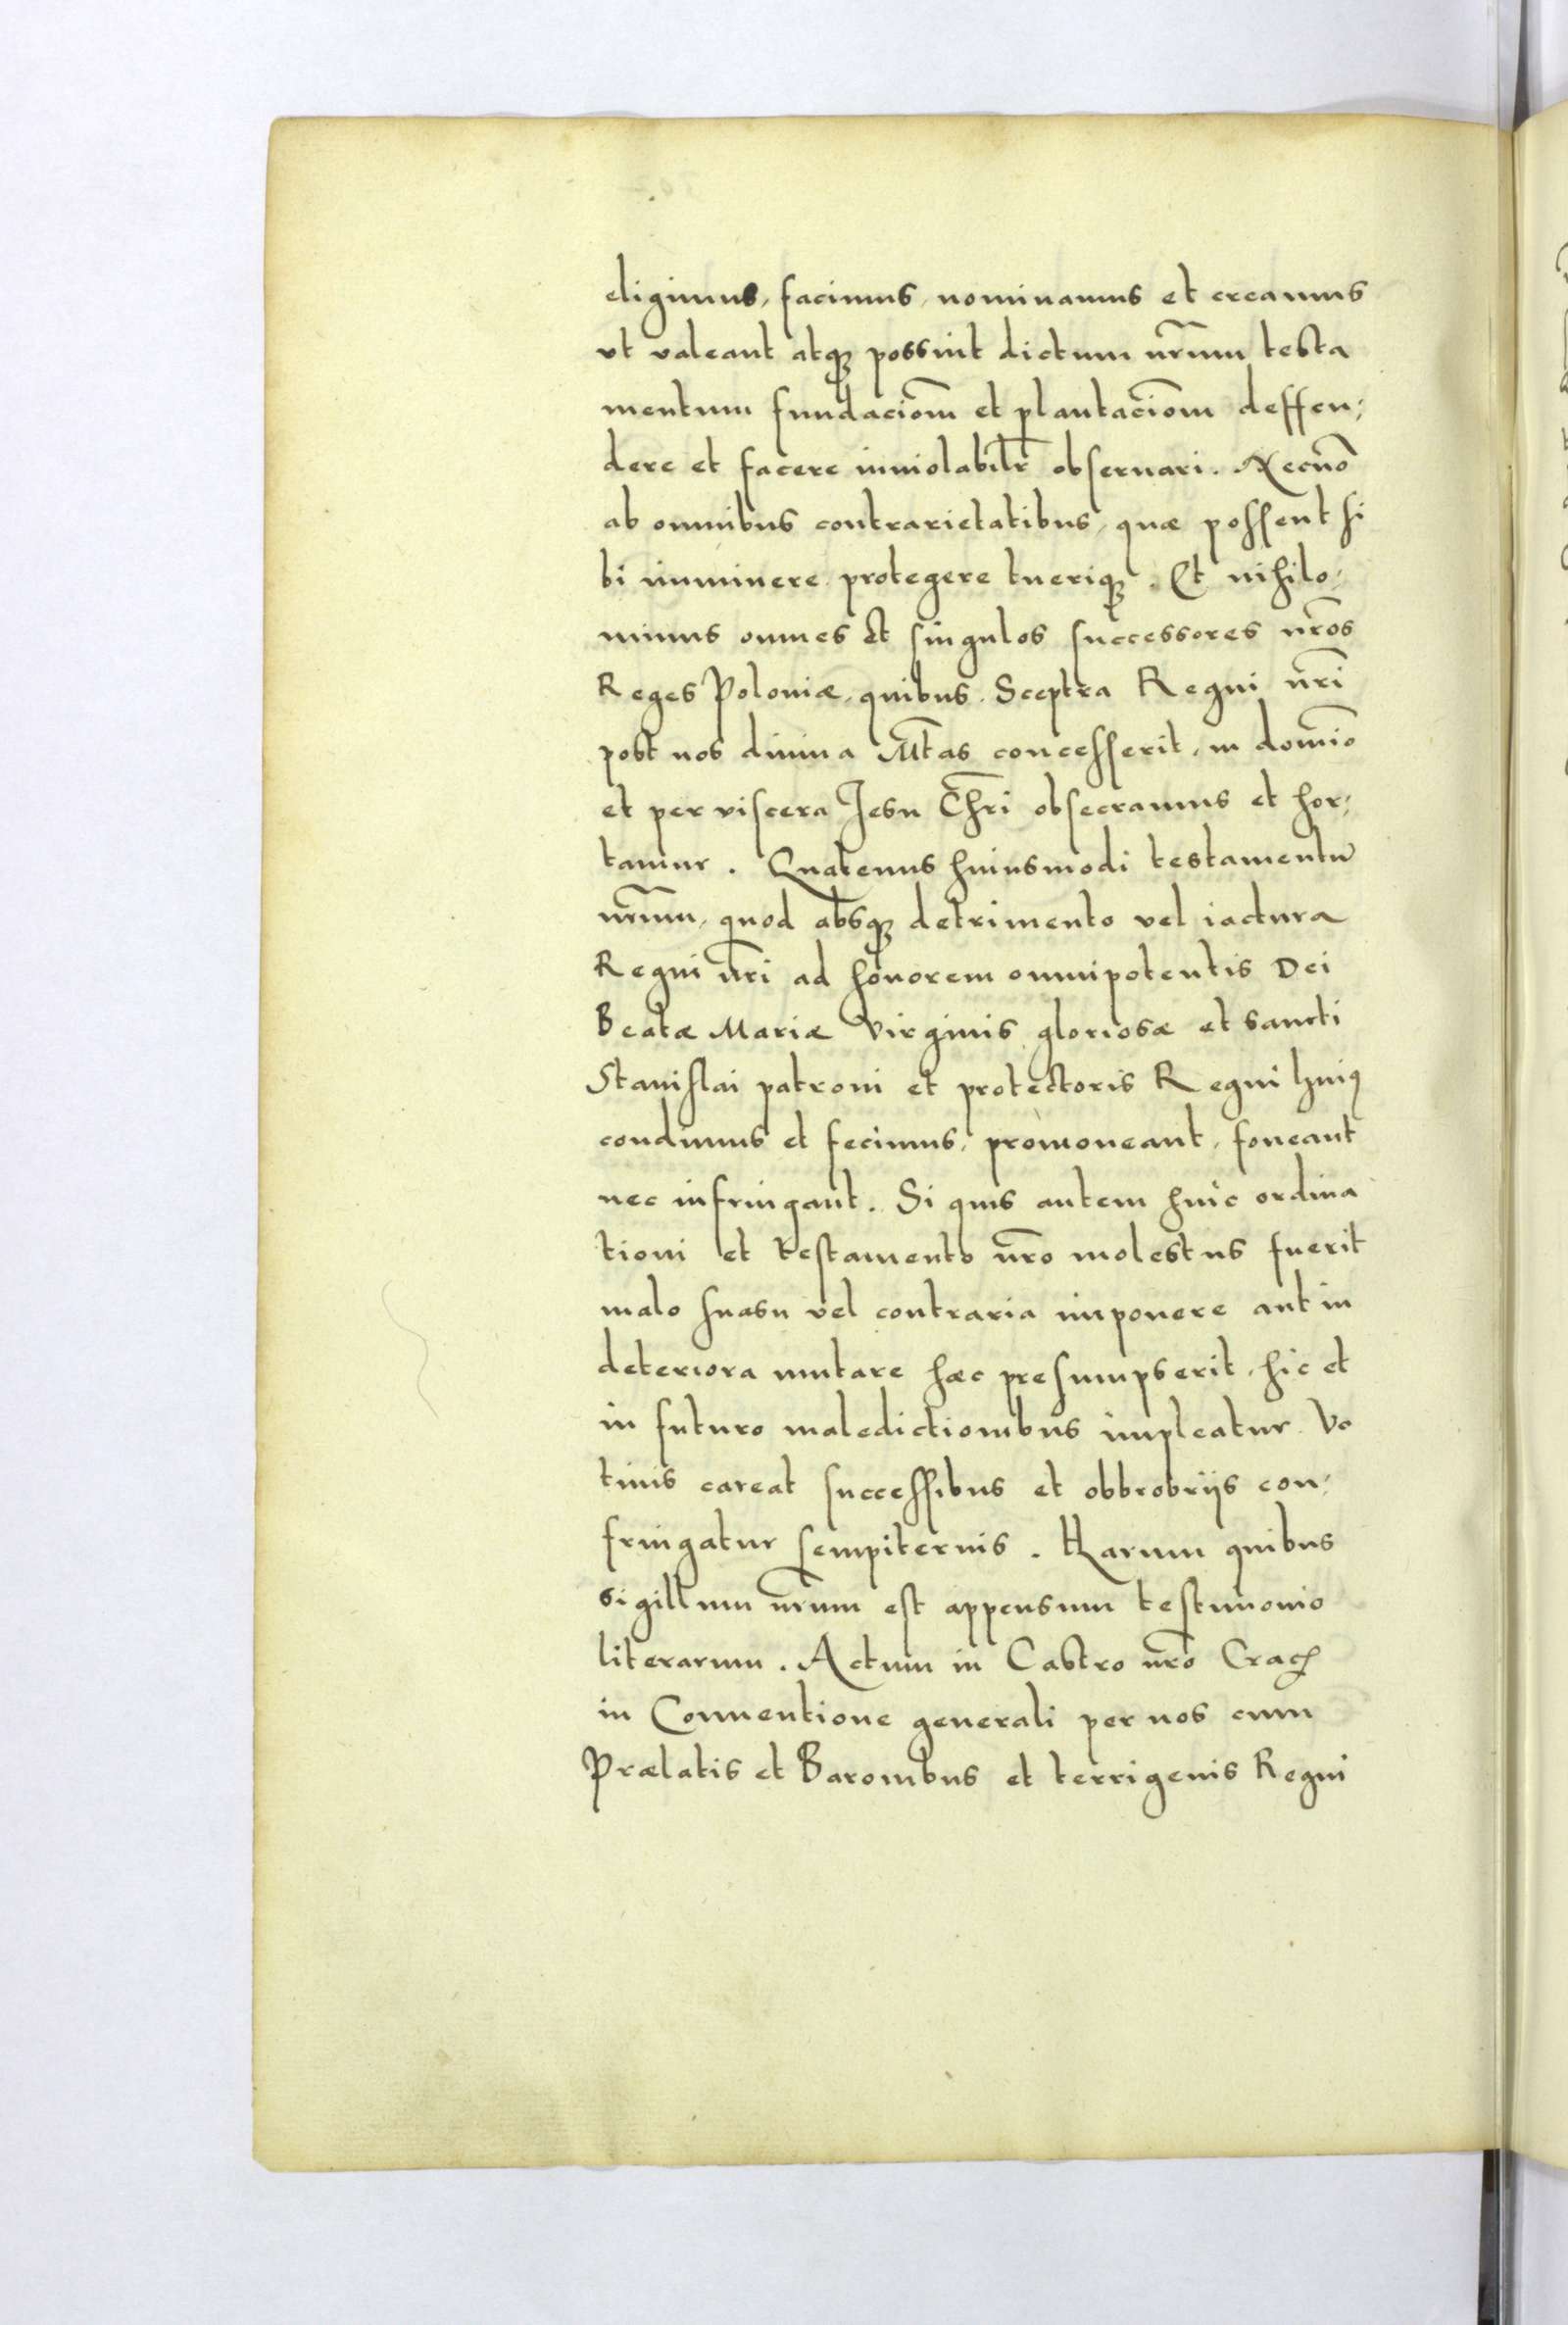 eligimus, facimus, nominamus et creamus
vt valeant atq; possint dictum nr̃um testa
mentum fundaciom̃ et plantaciom̃ deffen,
dere et facere inuiolabilr̃ obseruari. Necñõ
ab omnibus contrarietatibus, quæ possent si
bi imminere protegere tueriq;. Et nihilo,
minus omnes et singulos successores nr̃os
Reges Poloniæ, quibus. Sceptra Regni nr̃i
post nos diuina Mt̃as concesserit, in domĩo
et per viscera Jesu Chr̃i obsecramus et hor,
tamur. Quatenus huiusmodi testamentũ
nr̃um, quod absq; detrimento vel iactura
Regni nr̃i ad honorem omnipotentis Dei
Beatæ Mariæ Virginis gloriosæ et sancti
Stanislai patroni et protectoris Regni huiꝰ
condimus et fecimus, promoueant, foueant
nec infringant. Si quis autem huic ordina
tioni et testamento nr̃o molestus fuerit
malo suasu vel contraria imponere aut in
deteriora mutare hæc presumpserit, hic et
in futuro maledictionibus impleatur. Vo
tiuis careat successibus et obbrobrijs con,
fringatur sempiternis. Harum quibus
sigillum nr̃um est appensum testimonio
literarum. Actum in Castro nr̃o Crac̃
in Conuentione generali per nos cum
Prælatis et Baronibus et terrigenis Regni